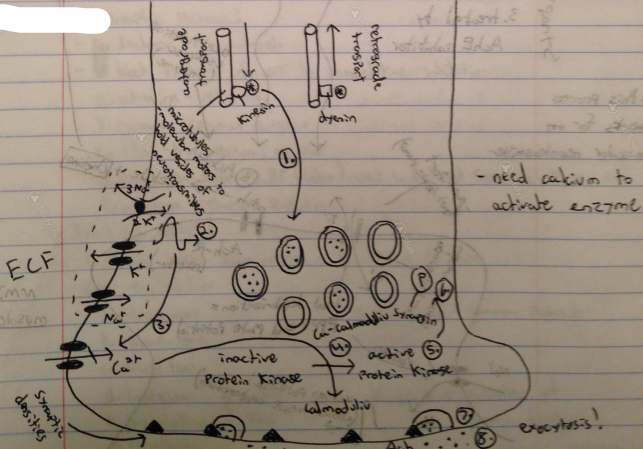 anterograde
transport
retrograde
transport
Kinesin
dynin
microtubules
molecular motors to
hold vesicles of
neurotransmitters
1.
2.
- need calcium to
activate enzyme
3Na+
2K+
K+
ECF
Na+
3.
Ca2+
P
6.
Ca-calmodulin synapsin
4.
5.
inactive
Protein Kinase
active
Protein Kinase
Calmodulin
synaptic
densities
7.
8.
exocytosis!
ACh